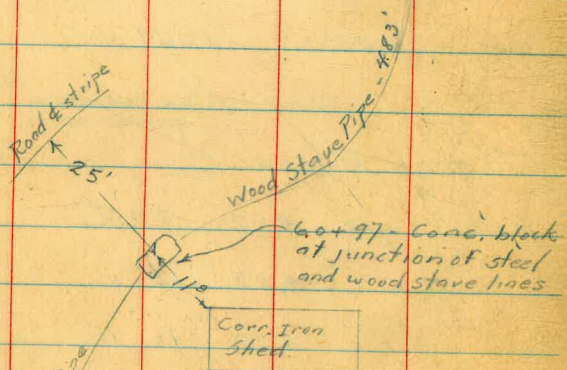 Road & stripe
25'
Wood Stave Pipe - 483'
60+97 - Conc. block
at junction of steel
and wood stave lines
11⁰
Corr. Iron
Shed